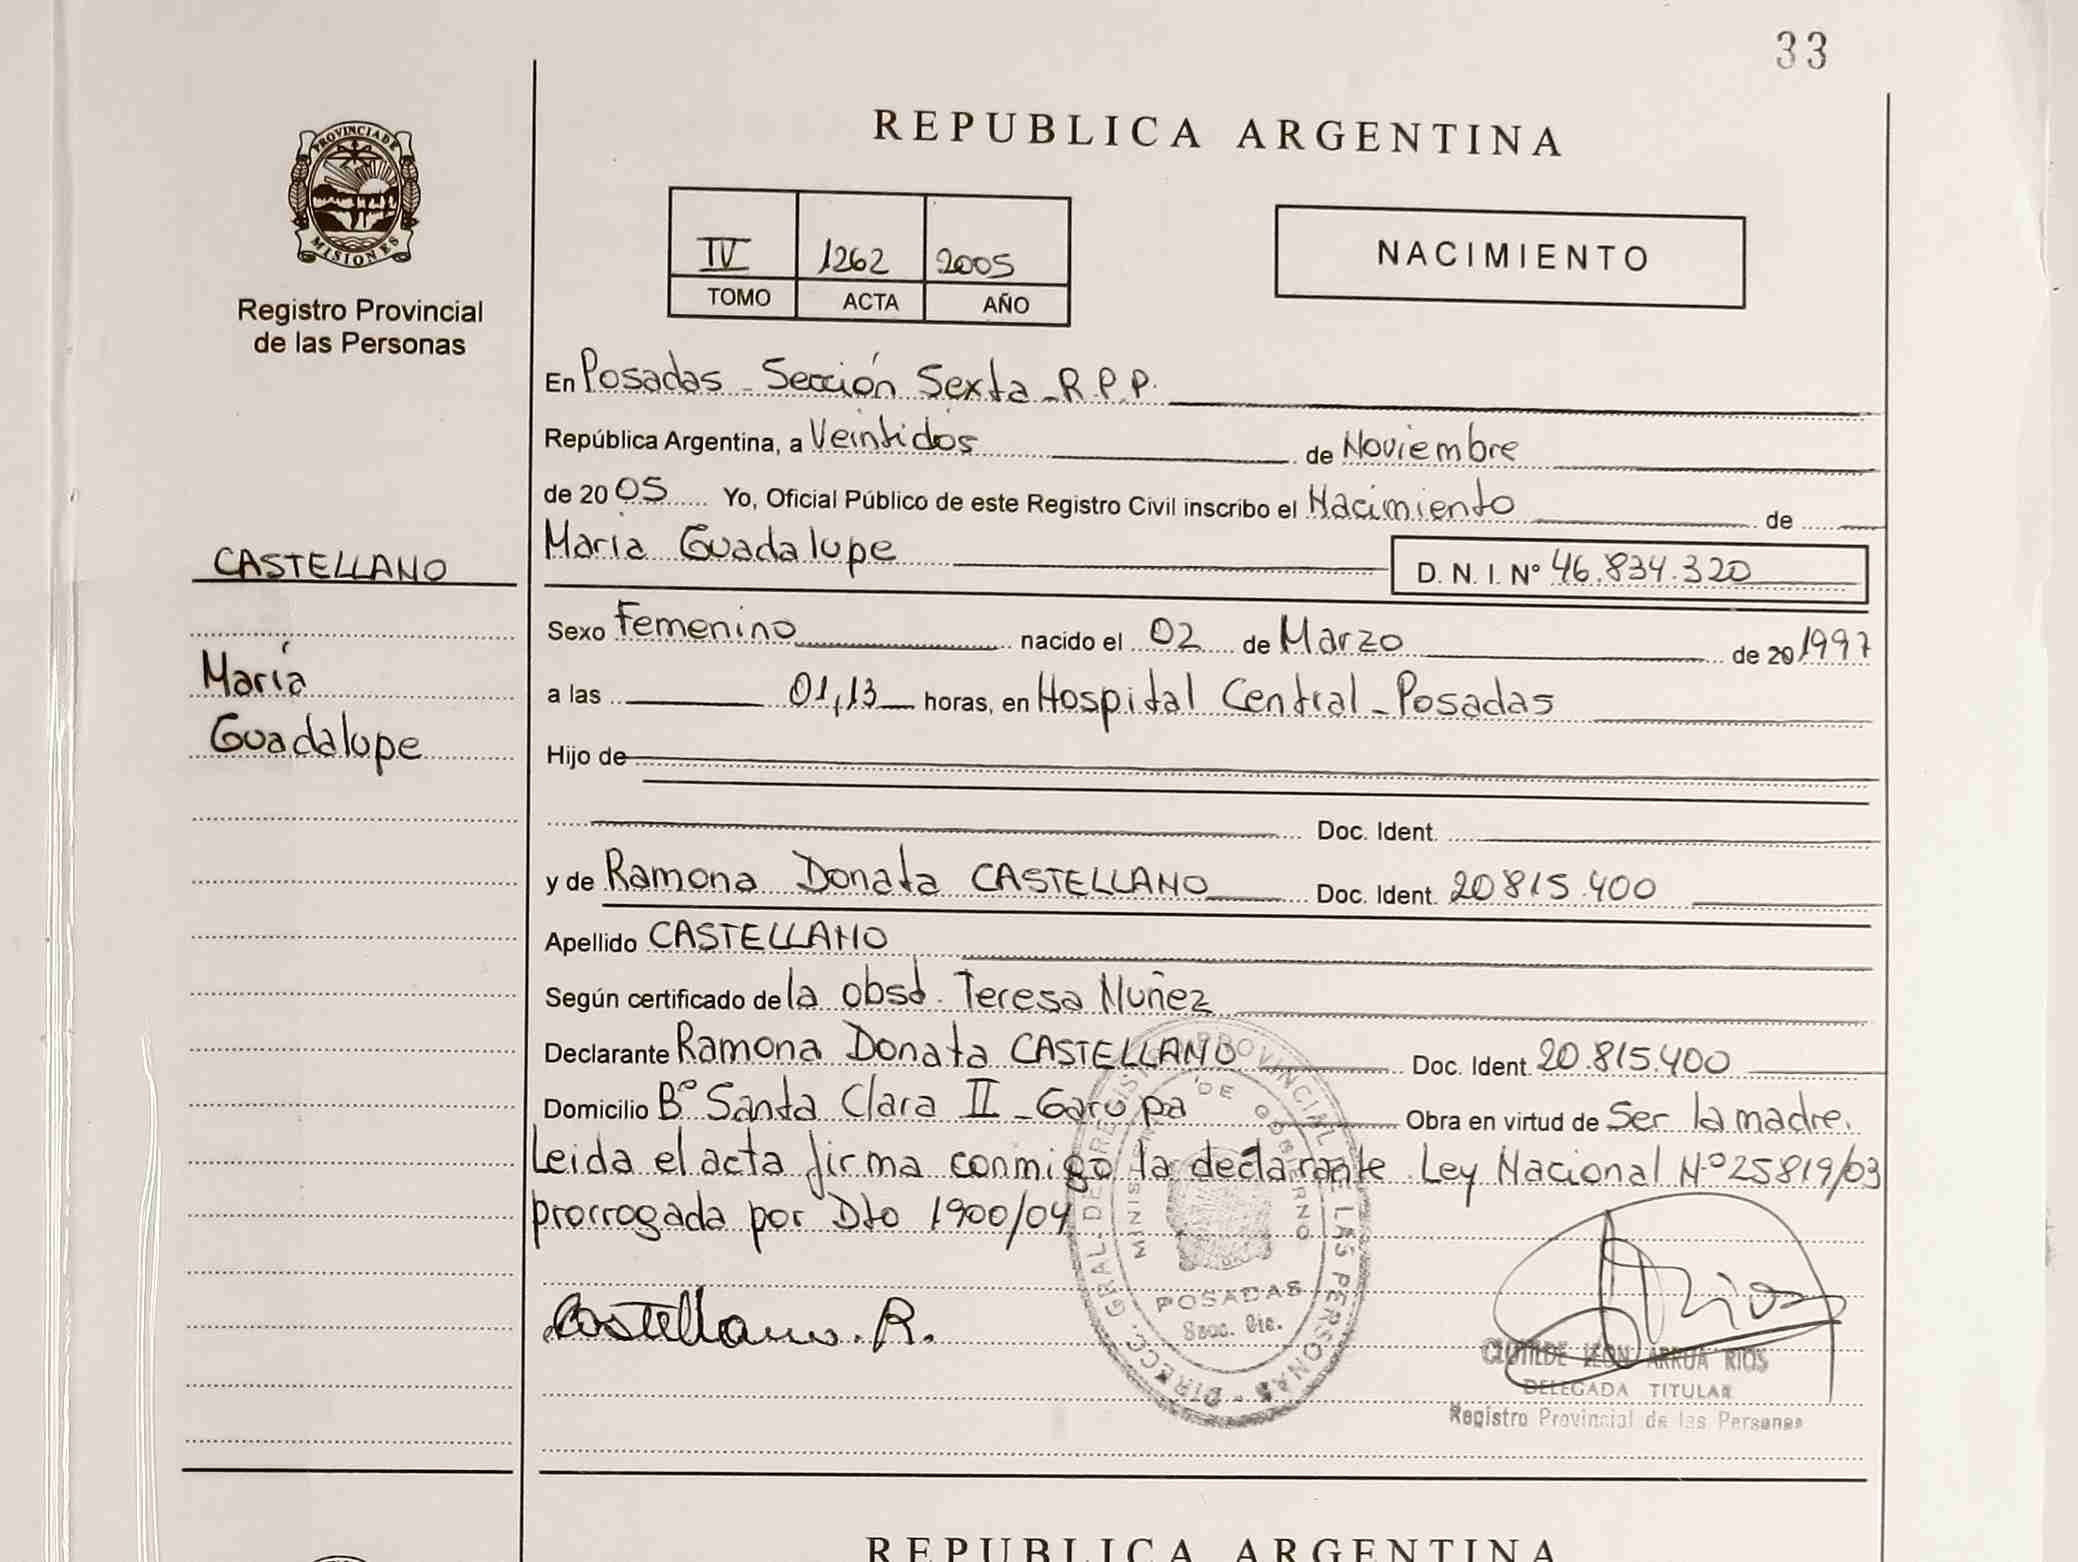 33
PROVINCIA DE
MISIONES
Registro Provincial
de las Personas
REPUBLICA ARGENTINA
IV 1262 2005
TOMO ACTA AÑO
NACIMIENTO
En Posadas - Sección Sexta - R.P.P.
República Argentina, a Veintidós de Noviembre
de 20 05 Yo, Oficial Público de este Registro Civil inscribo el Nacimiento de
CASTELLANO
María Guadalupe D. N. I. Nº 46.834.320
Sexo Femenino nacido el 02 de Marzo de 20 1997
María
a las 01,13 horas, en Hospital Central - Posadas
Guadalupe
Hijo de
Doc. Ident.
y de Ramona Donata CASTELLANO Doc. Ident. 20815.400
Apellido CASTELLANO
Según certificado de la obst. Teresa Nuñez
Declarante Ramona Donata CASTELLANO Doc. Ident. 20.815.400
Domicilio Bº Santa Clara II - Garupa Obra en virtud de Ser la madre.
Leida el acta firma conmigo la declarante. Ley Nacional Nº 25819/03
prorrogada por Dto 1900/04
Castellano. R.
DIRECC. GRAL. DE REGISTRO PROVINCIAL DE LAS PERSONAS
MINIST. DE GOBIERNO
POSADAS
Secc. 6ta.
CLOTILDE LEON ARRUA RIOS
DELEGADA TITULAR
Registro Provincial de las Personas
REPUBLICA ARGENTINA